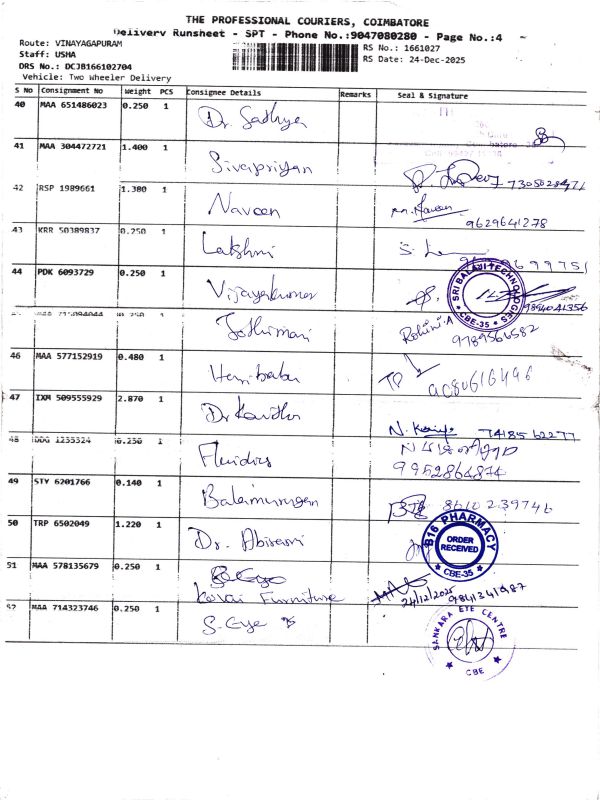 THE PROFESSIONAL COURIERS, COIMBATORE
Delivery Runsheet - SPT - Phone No.:9047080280 - Page No.:4
Route: VINAYAGAPURAM
RS No.: 1661027
Staff: USHA
RS Date: 24-Dec-2025
DRS No.: DCJB166102704
Vehicle: Two Wheeler Delivery
S No Consignment No Weight PCS Consignee Details Remarks Seal & Signature
40 MAA 651486023 0.250 1 Dr. Sadhya
41 MAA 304472721 1.400 1 Sivapriyan
7305028471
42 RSP 1989661 1.380 1 Naveen
9629641278
43 KRR 50389837 0.250 1 Lakshmi
44 PDK 6093729 0.250 1 Vijayakumar
SRI BALAJI TECHNOLOGIES
CBE-35
9894041356
1 Jothimani Rohini.A
9789566582
46 MAA 577152919 0.480 1 Haribabu
47 IXM 509555929 2.870 1 Dr Kavitha
7418562277
48 DDG 1235324 0.250 1 Fluidics
9952864874
49 STY 6201766 0.140 1 Balamurugan
8610239746
50 TRP 6502049 1.220 1 Dr. Abirami
B16 PHARMACY
ORDER RECEIVED
CBE-35
51 MAA 578135679 0.250 1
Kovai Furniture
24/12/2025
9841341987
52 MAA 714323746 0.250 1 S. Eye
SANKARA EYE CENTRE
CBE